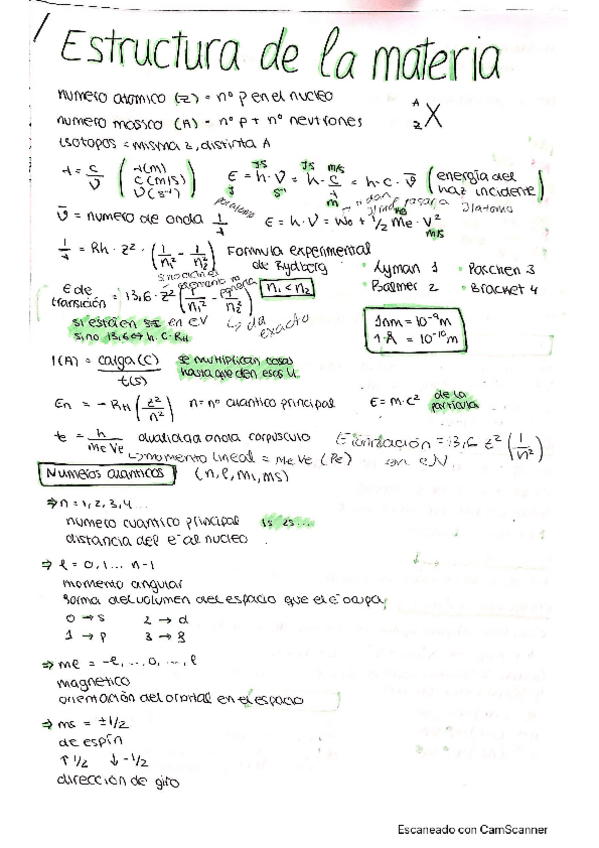 Estructura de la materia
numero atomico (Z) = nº p en el nucleo
numero masico (A) = nº p + nº neutrones
A
Z X
isotopos = misma Z, distinta A
λ = c/ν (λ(m) C(m/s) ν(s⁻¹)) E = h · ν = h · c/λ = h · c · ν̄ (energía del haz incidente)
J JS s⁻¹ JS m/s m
ν̄ = numero de onda 1/λ E = h · ν = W₀ + 1/2 me · V²
m/s
1/λ = Rh · Z² · (1/n₁² - 1/n₂²) Formula experimental de Rydberg
• Lyman 1 • Paschen 3
• Balmer 2 • Bracket 4
E de transición = 13,6 · Z² (1/n₁² - 1/n₂²) n₁ < n₂
si está en en eV ↳ da exacto
sino 13,6 ↔ h · C · RH
1nm = 10⁻⁹ m
1 Å = 10⁻¹⁰ m
I(A) = carga(C)/t(s) se multiplican cosas hasta que den esas U.
En = - RH (Z²/n²) n = nº cuantico principal E = m · c² de la particula
λe = h/me Ve dualidad onda corpusculo E ionización = 13,6 Z² (1/n²)
↳ momento lineal = me Ve (Pe) en eV
Numeros cuanticos (n, l, ml, ms)
⇒ n = 1, 2, 3, 4...
numero cuantico principal 1s 2s...
distancia del e⁻ al nucleo
⇒ l = 0, 1... n-1
momento angular
forma del volumen del espacio que el e⁻ ocupa
0 → s 2 → d
1 → p 3 → f
⇒ ml = -l, ...0, ..., l
magnetico
orientación del orbital en el espacio
⇒ ms = ±1/2
de espín
↑ 1/2 ↓ -1/2
dirección de giro
Escaneado con CamScanner